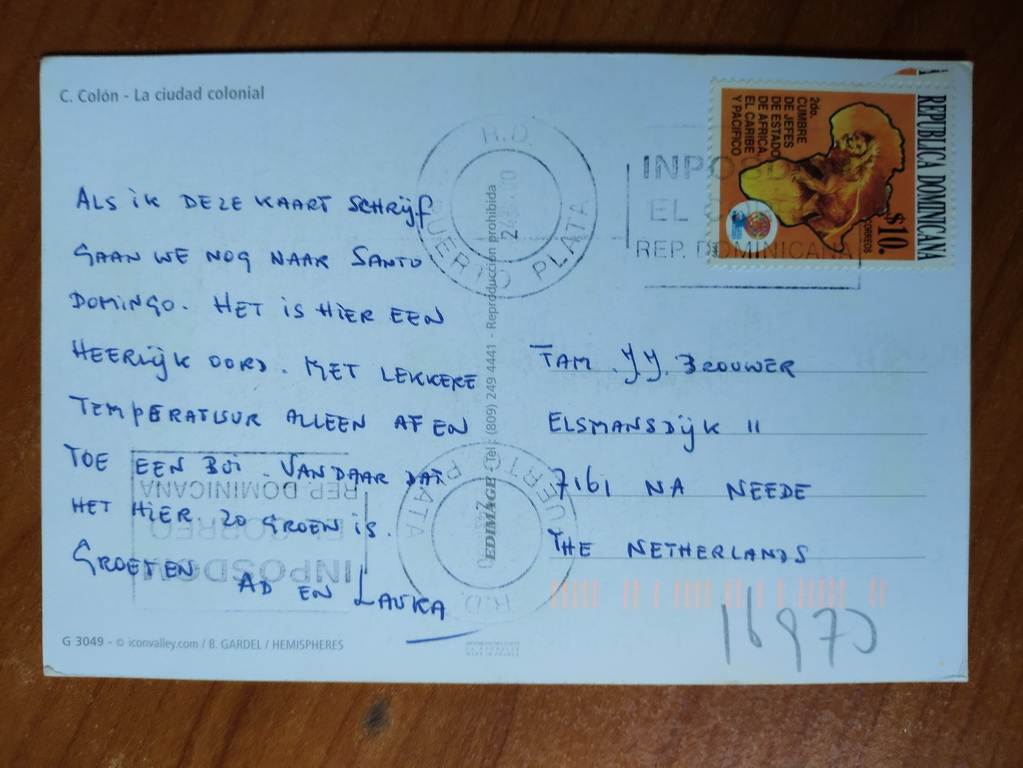 C. Colón - La ciudad colonial
ALS IK DEZE KAART SCHRIJF
GAAN WE NOG NAAR SANTO
DOMINGO. HET IS HIER EEN
HEERLIJK OORD. MET LEKKERE
TEMPERATUUR ALLEEN AF EN
TOE EEN BUI. VANDAAR DAT
HET HIER ZO GROEN IS.
GROETEN
AD EN
G 3049 - © iconvalley.com / B. GARDEL / HEMISPHERES
EDIMAGE - Tel : (809) 249 4441 - Reproducción prohibida
R.D.
PUERTO PLATA
INPOSDOM
EL
REP. DOMINICANA
REPUBLICA DOMINICANA
2do.
CUMBRE
DE JEFES
DE ESTADO
DE AFRICA
EL CARIBE
Y PACIFICO
CORREOS
$10.
FAM. J.J. BROUWER
ELSMANSDIJK 11
7161 NA NEEDE
THE NETHERLANDS
R.D.
PUERTO PLATA
INPOSDOM
EL CORREO
REP. DOMINICANA